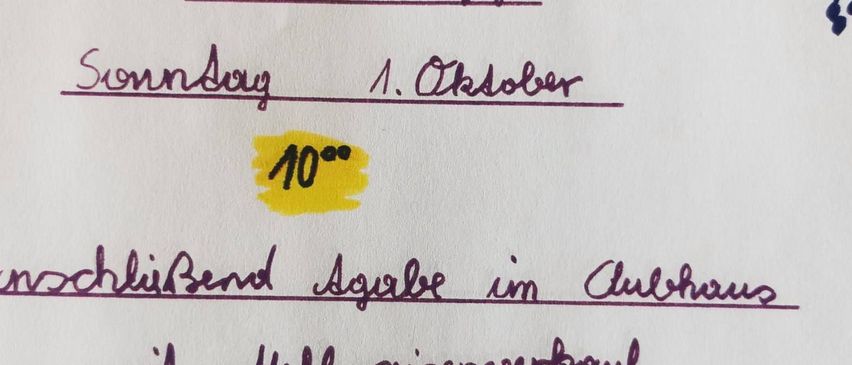 Sonntag 1. Oktober
10⁰⁰
nschließend Agabe im Clubhaus